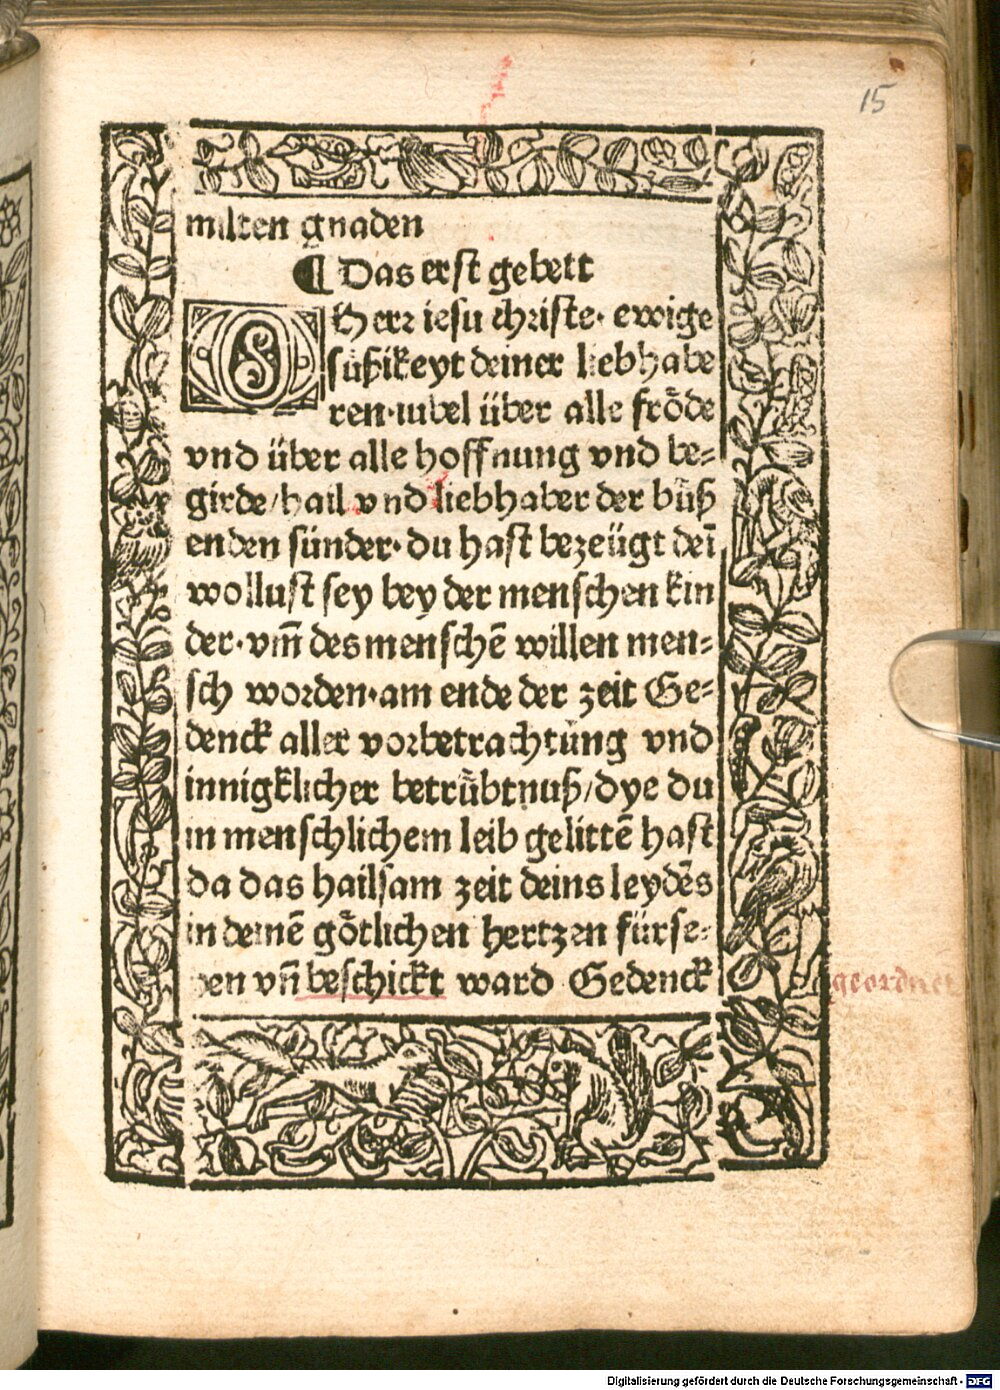 15
milten gnaden
¶ Das erst gebett
O Herr iesu christe· ewige
süßikeyt deiner liebhabe
ren·iubel über alle frӧde
vnd über alle hoffnung vnd be⸗
girde/hail vnd liebhaber der büß
enden sünder·du hast bezeügt dei̅
wollust sey bey der menschen kin
der·vm̅ des mensche̅ willen men⸗
sch worden·am ende der zeit Ge⸗
denck aller vorbetrachtung vnd
innigklicher betrůbtnuß/dye du
in menschlichem leib gelitte̅ hast
da das hailsam zeit deins leyde̅s
in deine̅ gӧtlichen hertzen fürse⸗
hen vn̅ beschickt ward Gedenck
geordnet
Digitalisierung gefördert durch die Deutsche Forschungsgemeinschaft - DFG